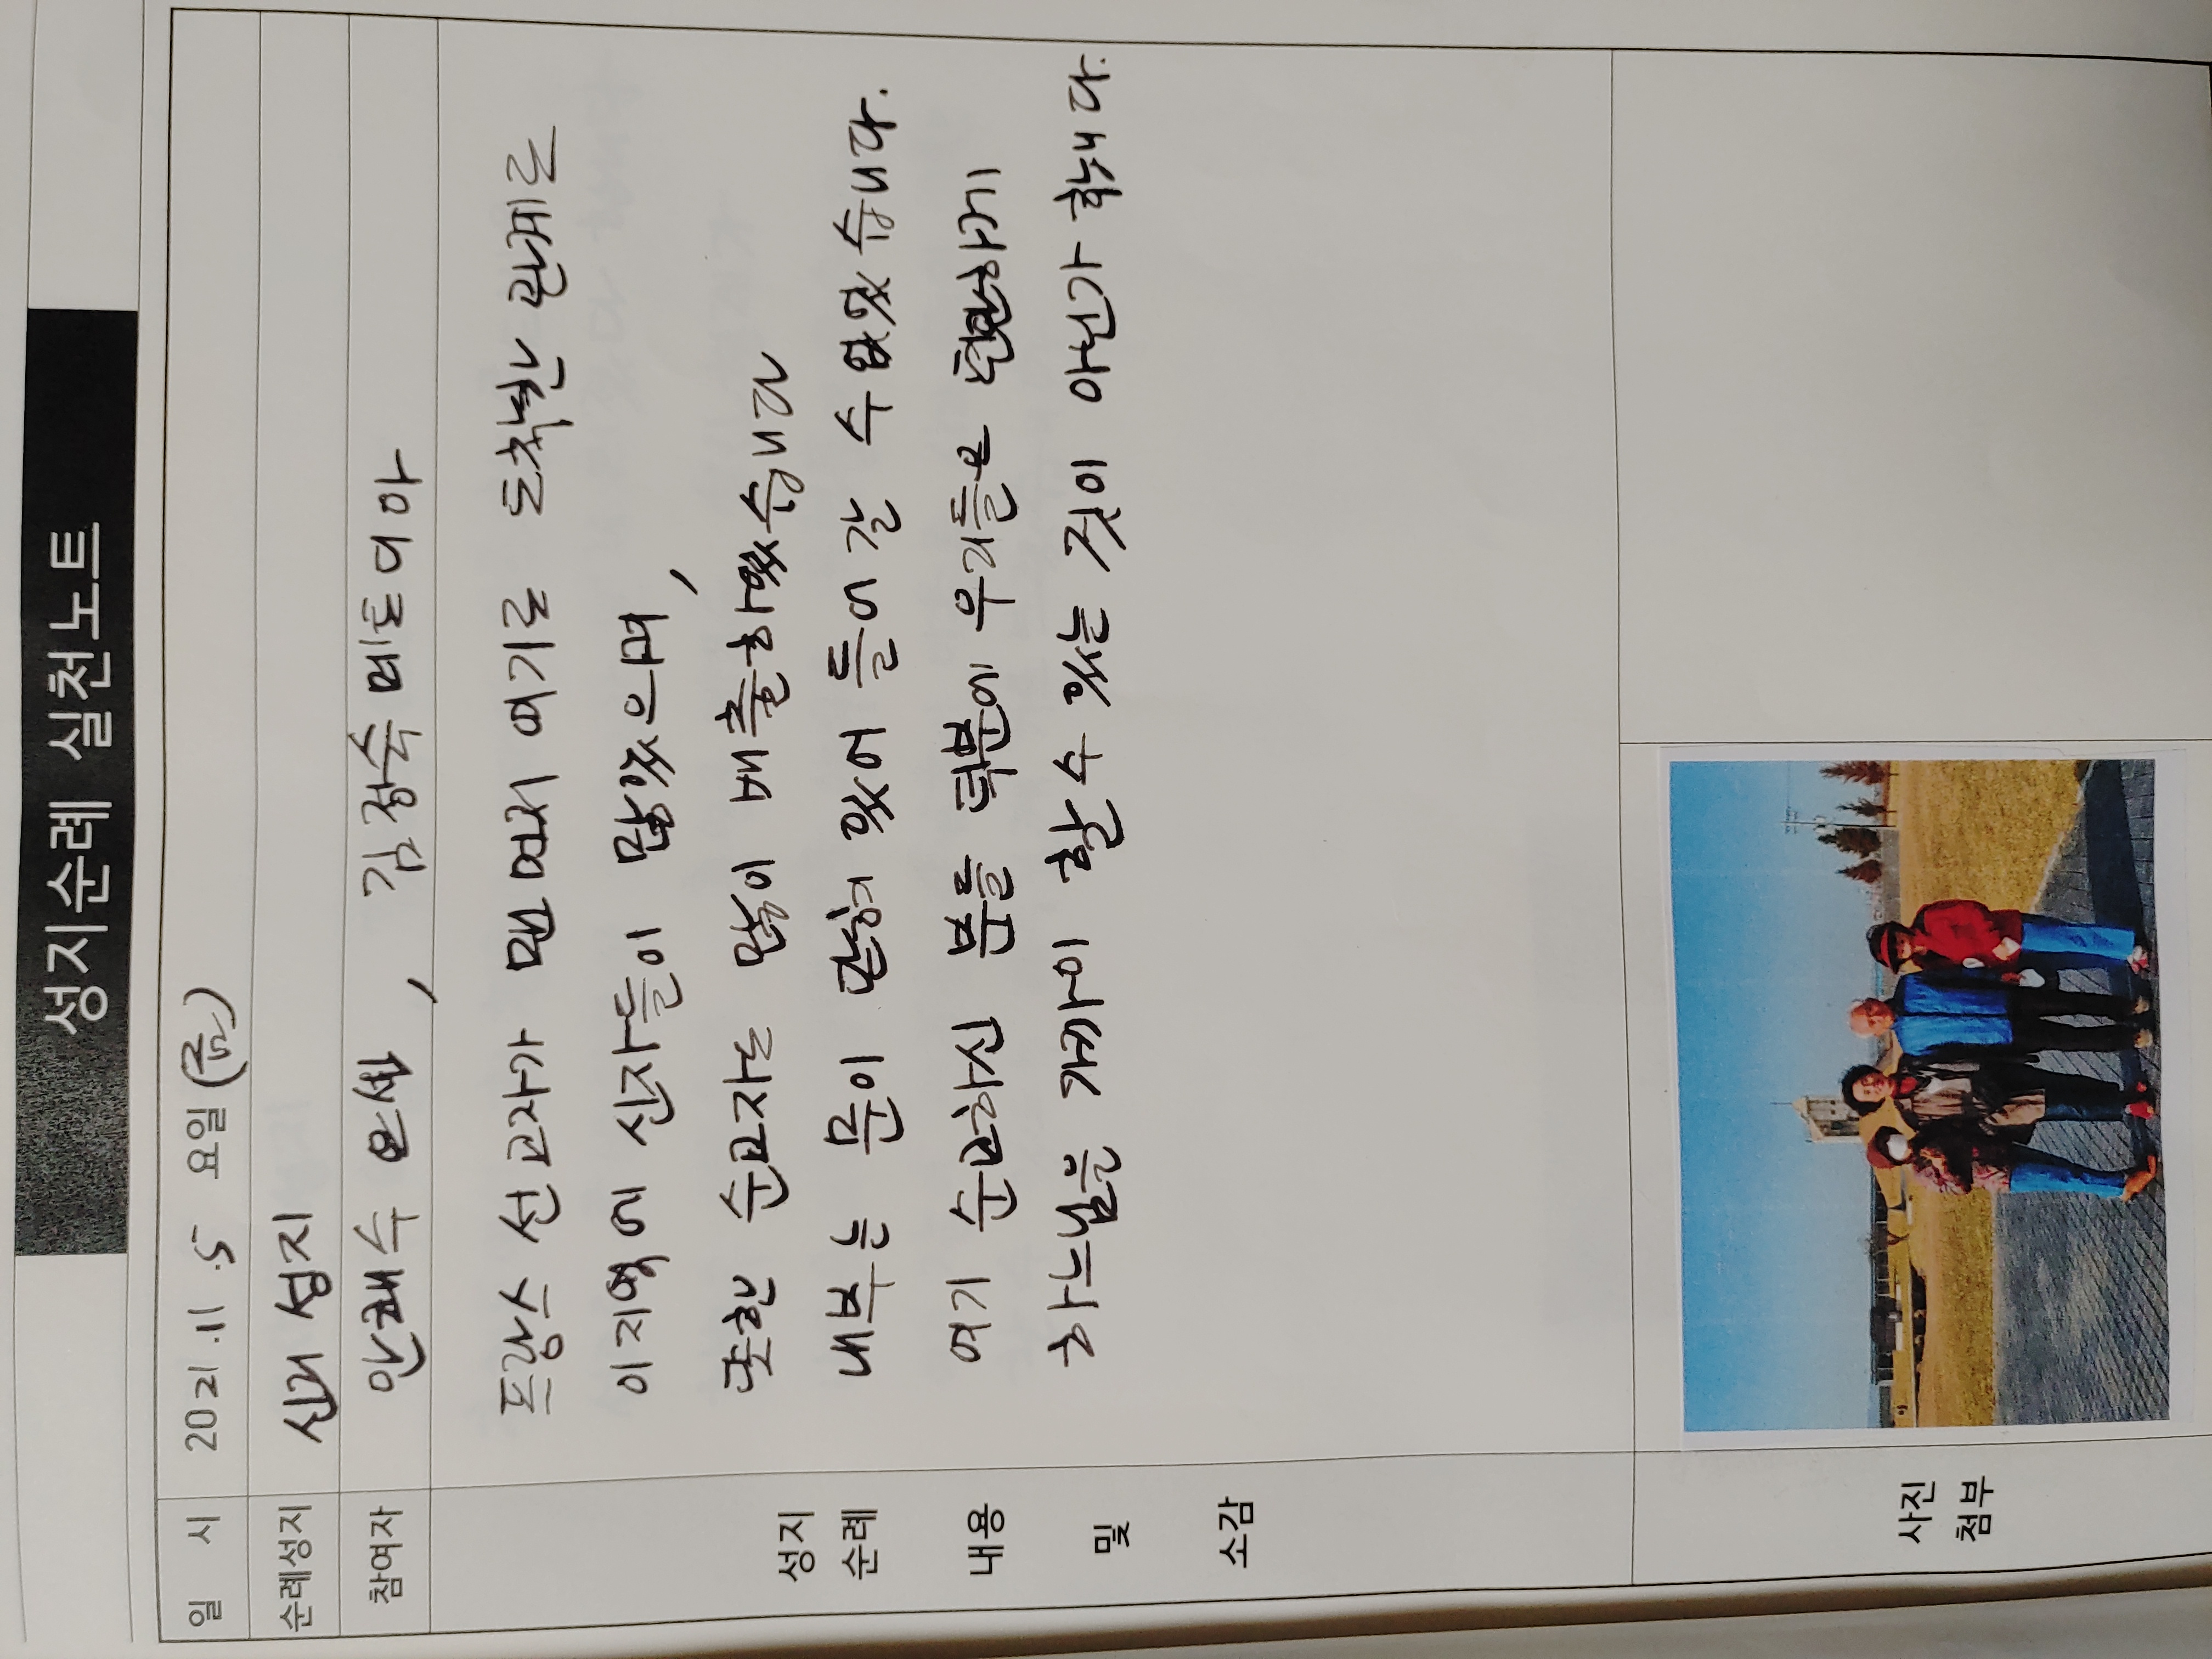 성지순례 실천노트
일 시 2021.11.5 요일(금)
순례성지 신리 성지
참여자 안래수 요셉, 김정숙 메토디아
성지
순례
내용
및
소감
프랑스 선교자가 맨먼저 여기로 도착한 관계로
이지역에 신자들이 많았으며,
또한 순교자는 많이 배출하였습니다
내부는 문이 닫혀 있어 들어갈 수 없었습니다.
여기 순교하신 분들 덕분에 우리들은 편하게
하느님을 가까이 할 수 있는 것이 아닌가 합니다.
사진
첨부